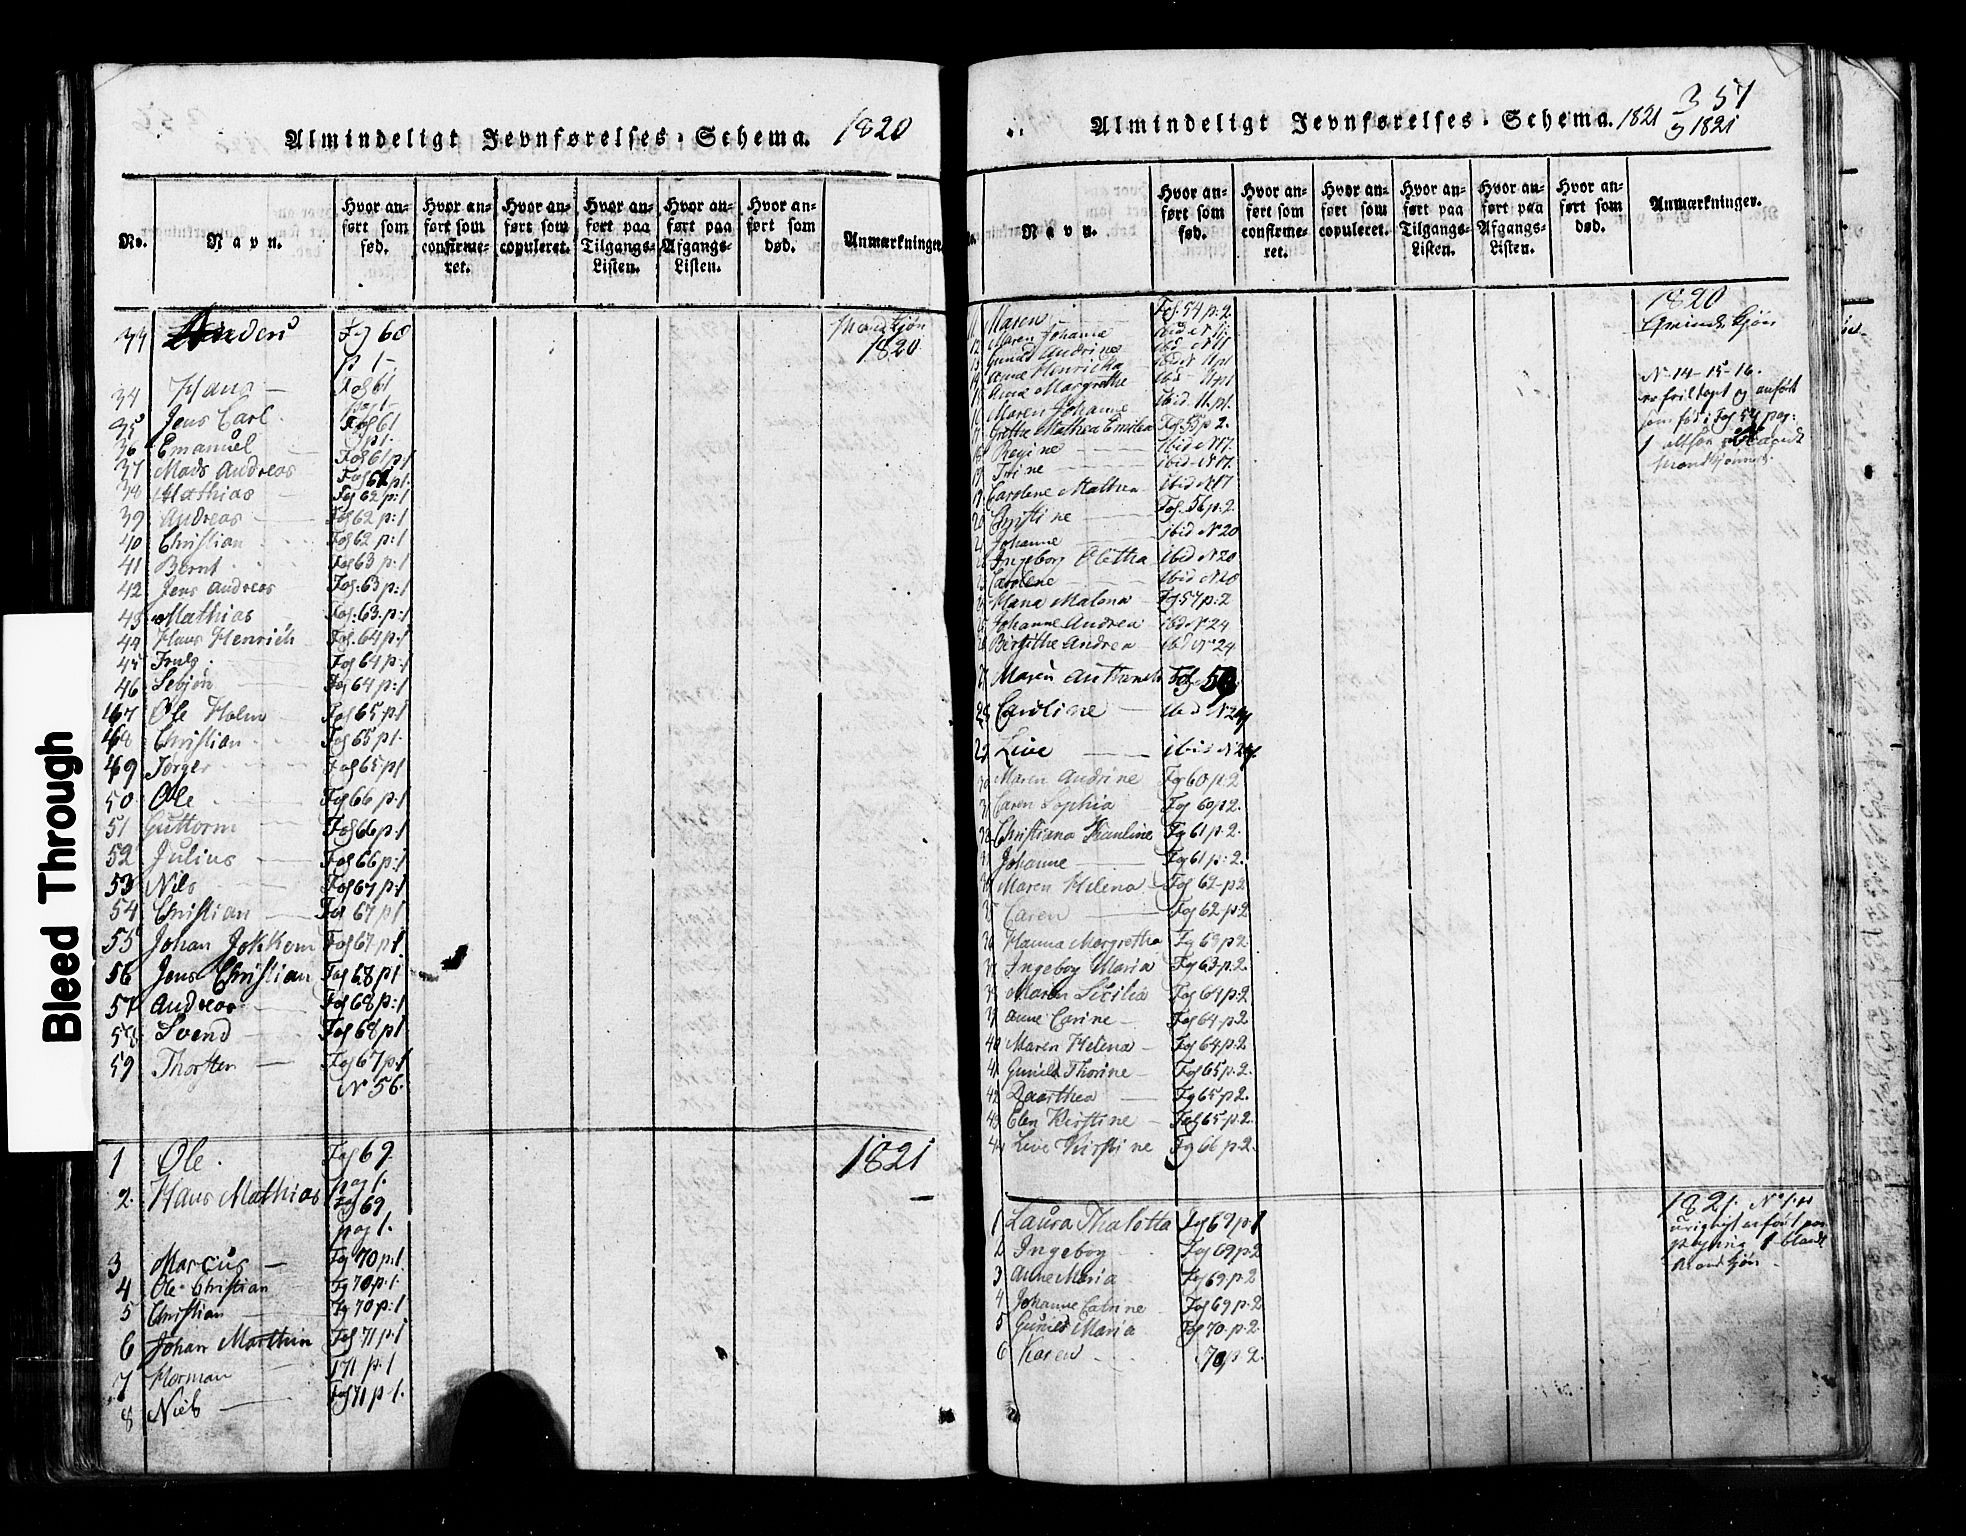 Bleed Through
Almindeligt Jevnførelses-Schema. 1820
No.
Navn.
Hvor an-
ført som
fød.
Hvor an-
ført som
confirme-
ret.
Hvor an-
ført som
copuleret.
Hvor an-
ført paa
Tilgangs-
Listen.
Hvor an-
ført paa
Afgangs-
Listen.
Hvor an-
ført som
død.
Anmærkninger.
Fog 60
p 1
Mandkjøn
1820
34 Hans Fog 61
pag 1
35 Jens Carl Fog 61
p 1.
36 Emanuel Fog 61 p 1
37 Mads Andreas Fog 61 p 1.
38 Mathias Fog 62 p: 1
39 Andreas Fog 62 p: 1
40 Christian Fog 62 p: 1
41 Bernt Fog 63 p: 1
42 Jens Andreas Fog: 63 p: 1
43 Mathias Fog: 63 p: 1
44 Hans Henrich Fog. 64 p: 1
45 Fog 64 p: 1
46 Fog 64 p: 1
47 Ole Holm Fog 65 p 1
48 Christian Fog 65 p 1.
49 Jørger Fog 65 p 1
50 Ole Fog 66 p: 1
51 Guttorm Fog 66 p: 1
52 Julius Fog 66 p: 1
53 Nils Fog 67 p: 1
54 Christian Fog 67 p 1
55 Johan Jokkom Fog 67 p 1.
56 Jens Christian Fog 68 p 1
57 Andreas Fog 68 p: 1
58 Svend Fog 68 p 1
59 Thorsten Fog 67 p: 1
N. 56.
1 Ole Fog 69 1821
pag 1.
2. Hans Mathias Fog 69
pag 1.
3 Marcus Fog 70 p: 1
4 Ole Christian Fog 70 p: 1.
5 Christian Fog 70 p: 1
6 Johan Marthin Fog 71 p: 1
7 Herman 171 p: 1
8 Niels Fog 71 p. 1.
357
Almindeligt Jevnførelses-Schema. 1821 1821
Navn.
Hvor an-
ført som
fød.
Hvor an-
ført som
confirme-
ret.
Hvor an-
ført som
copuleret.
Hvor an-
ført paa
Tilgangs-
Listen.
Hvor an-
ført paa
Afgangs-
Listen.
Hvor an-
ført som
død.
Anmærkninger.
1820
Maren Fog. 54 p: 2
Maren Johanne ibid N 11
Andrine ibid N 11
Anne Henricka ibid N 11 p 1
Anne Margrethe ibid 11 p 1
Maren Johanne ibid. 11. p 1.
Grethe Mathea Emilia Fog 55 p 2.
Regine ibid N 17.
Trine ibid N 17.
Carolene Mathea ibid N 17
Christine Fog. 56 p. 2
Johanne ibid N 20
Ingeborg Oletha ibid N 20
Carolene ibid N 20
Maria Malena Fog. 57 p: 2
Johanne Andrea ibd N 24
Birgithe Andrea ibid N 24
Maren
Caroline ibid N 24
Live ibid N 24
Maren Andrine Fog 60 p. 2
Caren Sophia Fog 60 p 2.
Christiana Pauline Fog 61 p. 2.
Johanne Fog 61 p: 2.
Maren Helena Fog 62 p 2
Caren Fog 62 p. 2
Hanna Margretha Fog 63 p 2
Ingeborg Maria Fog 63 p. 2.
Maren Sicilia Fog 64 p. 2
Anne Carine Fog 64 p. 2
40 Maren Helena Fog 64 p. 2
41 Gunild Thorine Fog 65 p. 2.
42 Daarthea Fog 65 p 2.
43 Elen Kirstine Fog 65 p 2.
44 Live Kirstine Fog 66 p 2.
N. 14-15-16.
1821. N. 1.
1 Laura Thalotta Fog 69 p. 1
2 Ingeborg Fog 69 p 2
3 Anne Maria Fog 69. p. 2
4 Johanne Catrine Fog 69 p. 2
5 Gunild Maria Fog 70. p. 2
6 Karen 70 p 2.